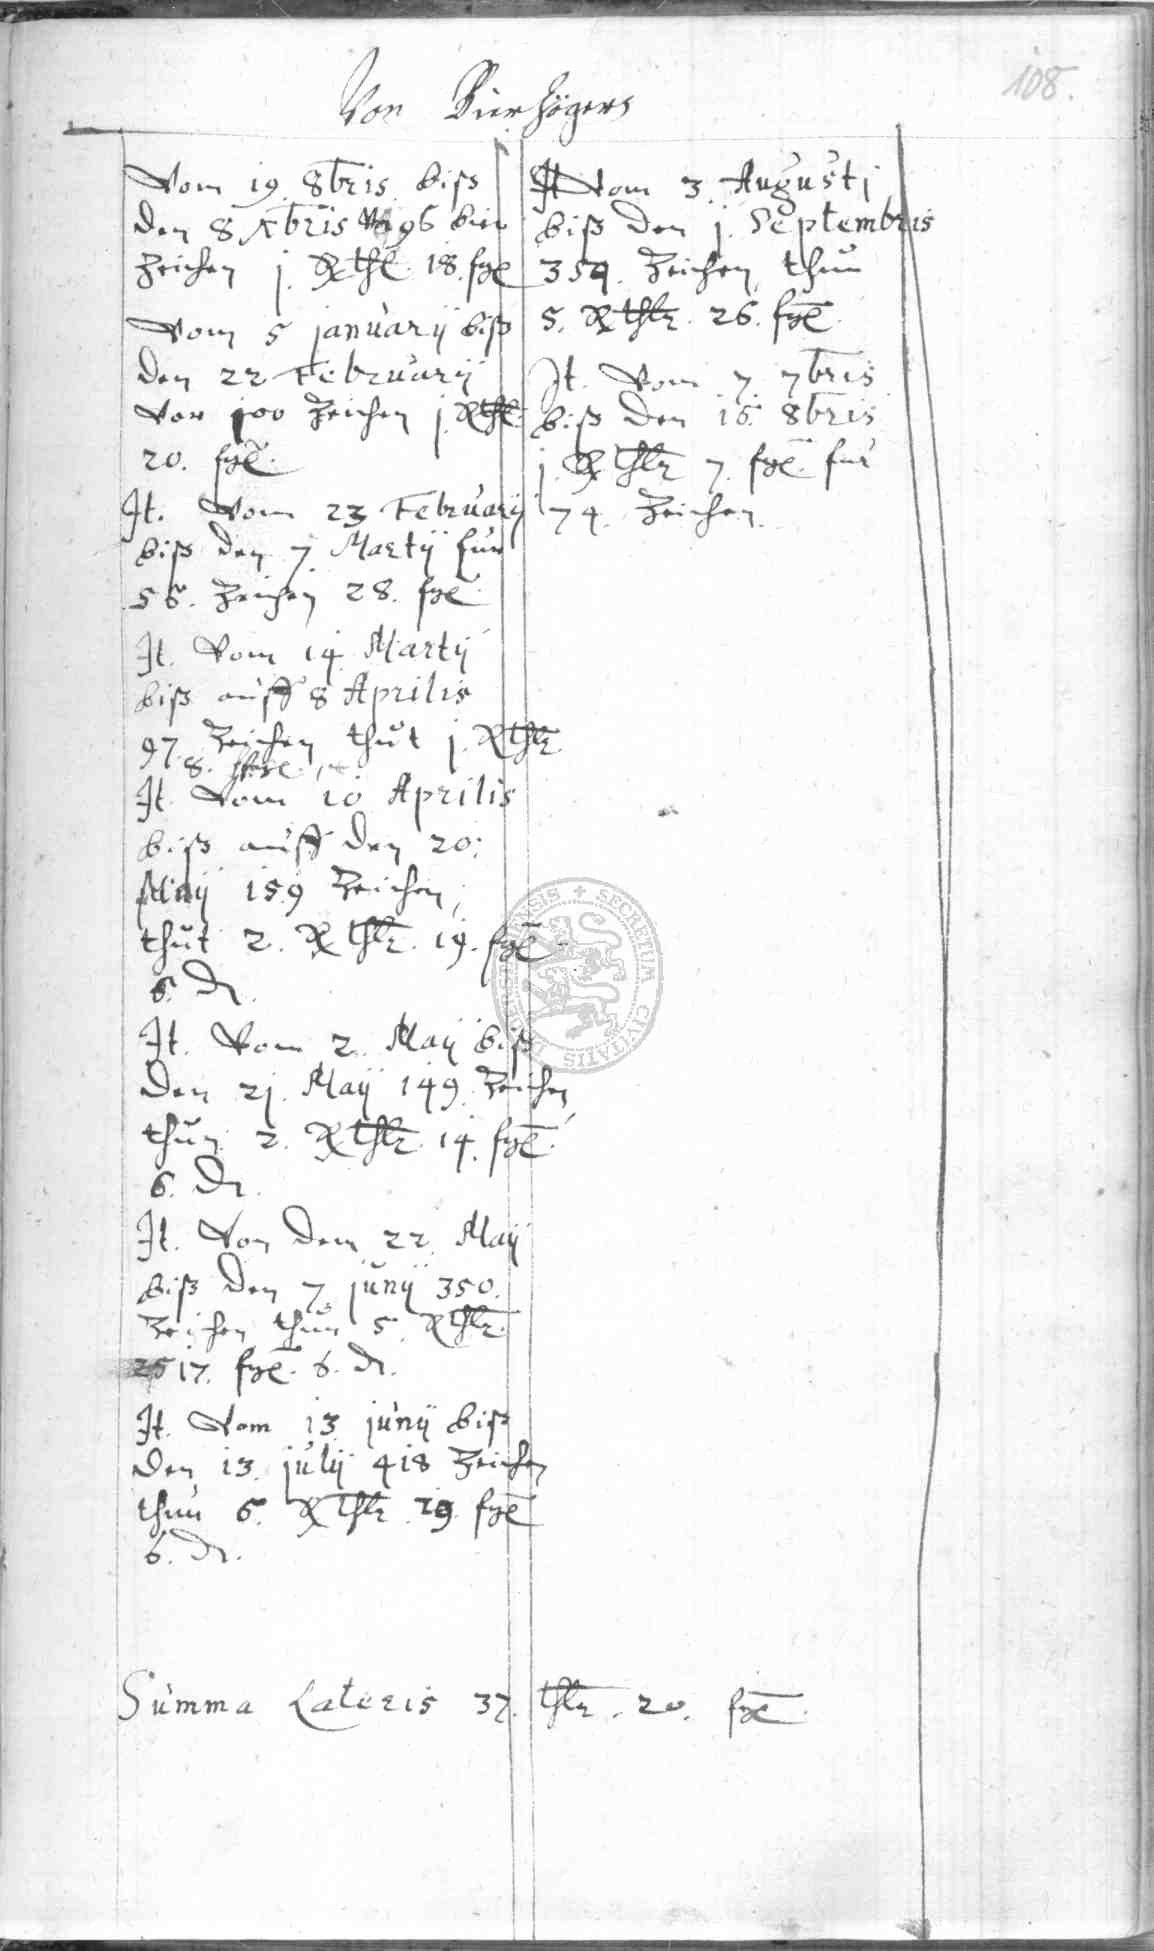 108.
Von Bierhögers
Vom 19. 8bris biß
den 8 Xbris 96 bier
Zeichen j. Rthl. 18. ßge
Vom 5 januarij biß
den 22 Februarij
Vor 100 Zeichen j. Rthl.
20. ßge.
It. Vom 23 Februarij
biß den 7. Martij fur
56. Zeichen 28. ßge
It. Vom 14 Martij
biß auff 8 Aprilis
97. Zeichen thut j. Rthlr
8. ßge.
It. Vom 10 Aprilis
biß auff den 20.
Maij 159 Zeichen,
thut 2. Rthlr. 19. ßge
6. dn.
It. Vom 2. Maij biß
den 2j. Maij 149. Zeichen
thun 2. Rthlr. 14. ßge.
6. dn.
It. Von dem 22. Maij
biß den 7 junij 350.
Zeichen thun 5. Rthlr.
17. ßge. 6. dn.
It. Vom 13 junij biß
den 13. julij 418 Zeichen
thun 6. Rthlr. 19. ßge
6. dn.
It Vom 3. Augustj
biß den j. Septembris
354. Zeichen thun
5. Rthlr. 26. ßge.
It. Vom 7 7bris
biß den 16. 8bris
j. Rthlr 7. ßge. fur
74. Zeichen.
Summa Lateris 37. thlr. 20. ßge.
SECRETUM CIVITATIS